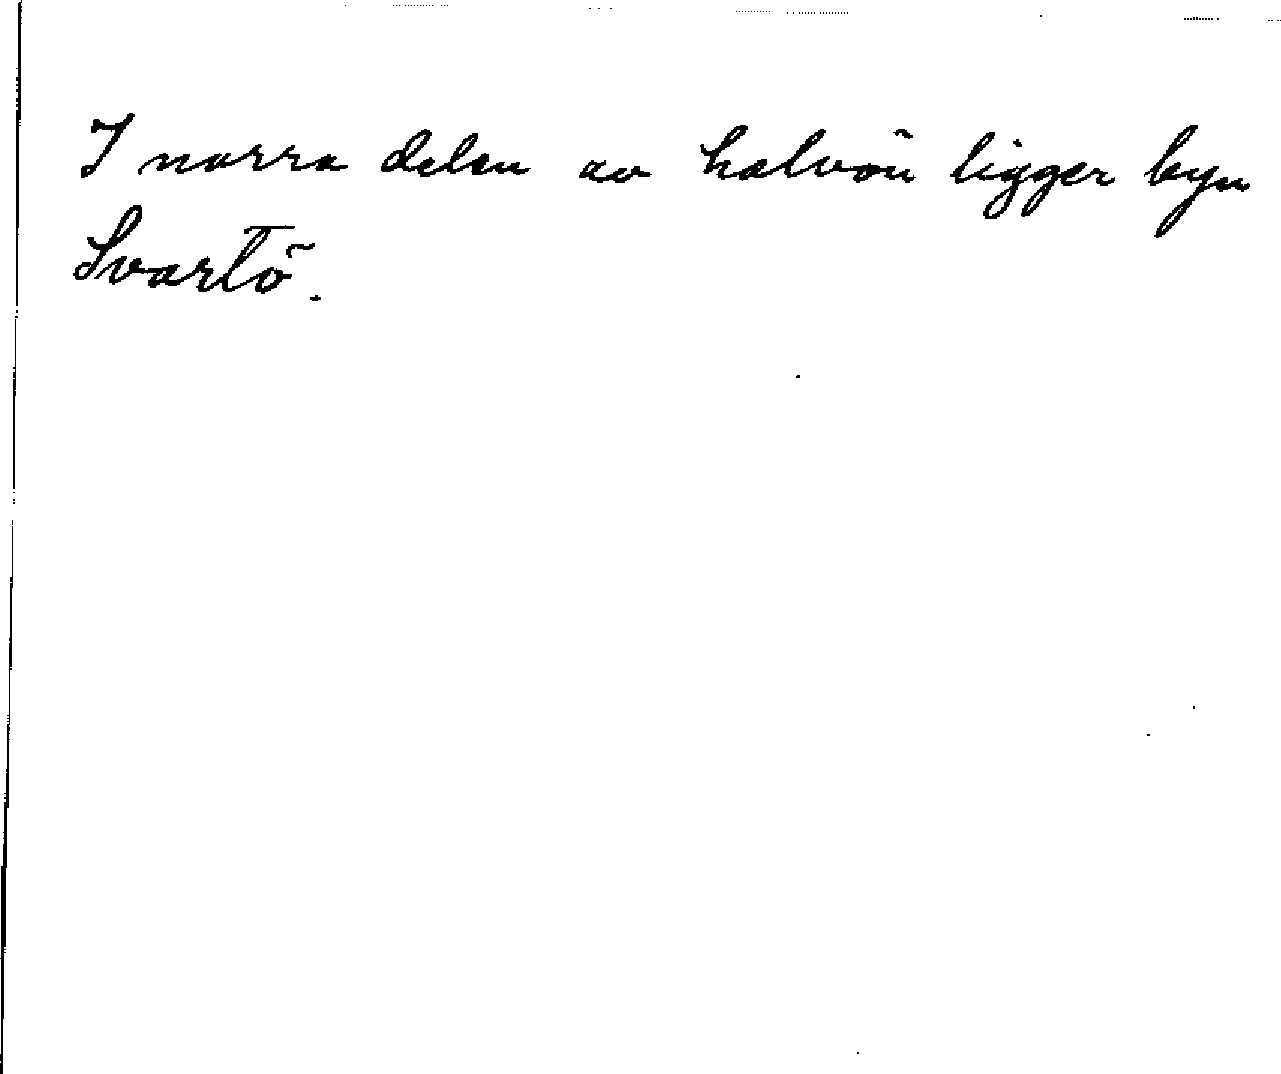 I norra delen av halvön ligger byn
Svartö.